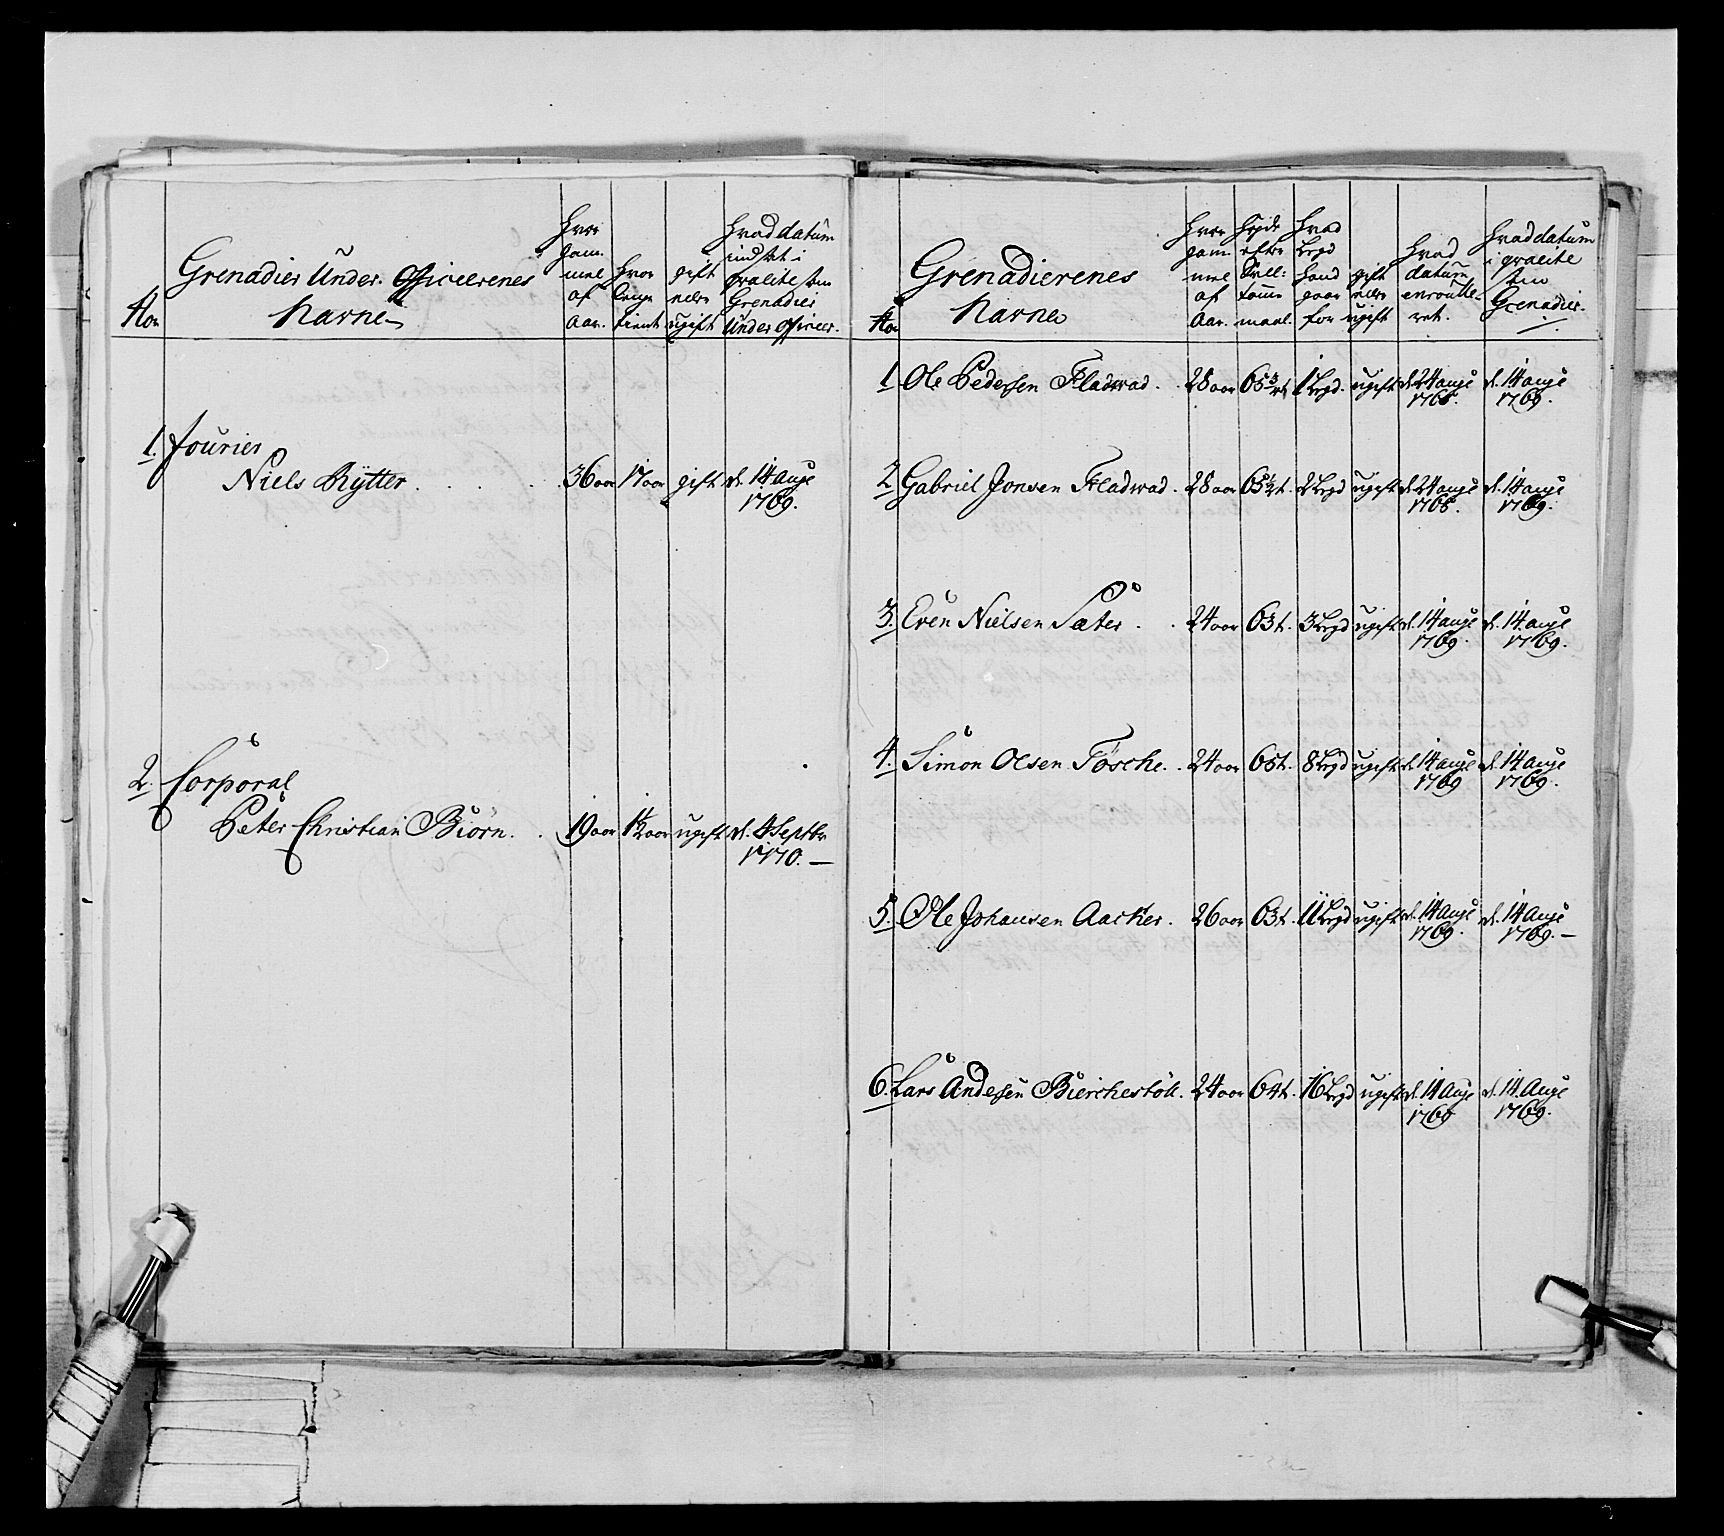 Grenadier Under. Officeerenes
Navne
No
Hvor
gam
mel
af
Aar.
Hvor
lenge
tient
gift
eller
ugift
Hvad datum
indsat i
qvalite som
Grenadier
Under Officeer.
1. Fourier
Niels Rÿtter . . . . . 36 aar 17 aar gift d. 14 Aug:
1769.
2. Corporal
Peter Christian Biørn. . 19 aar 1½ aar ugift d. 4 Septbr
1770. —
Grenadierenes
Navne
No
Hvor
gam
mel
af
Aar.
Høyde
efter
Sell:
tomme
maal.
Hvad
Legd
hand
gaar
for
gift
eller
ugift
Hvad
datum
enroulle-
ret.
Hvad datum
i qvalite
som
Grenadier.
1. Ole Pedersen Fladwad. . 28 aar 65¾ t. 1 Legd. ugift d. 24 aug: d. 14 aug:
1768. 1769.
2. Gabriel Jonsen Fladwad. 28 aar 65½ t. 2 Legd ugift d. 24 aug: d. 14 aug:
1768. 1769.
3. Even Nielsen Sæter. . 24 aar 63 t. 3 Legd ugift d. 14 aug: d. 14 aug:
1769. 1769.
4. Simon Olsen Fosche. . 24 aar 65 t. 8 Legd ugift d. 14 aug: d. 14 aug:
1769 1769.
5. Ole Johansen Aacker. 26 aar 63 t. 11 Legd ugift d. 14 Aug: d. 14 Aug:
1769. 1769. —
6. Lars Andersen Bierchestøll. 24 aar 64 t. 16 Legd ugift d. 14 Aug: d. 14 Aug:
1769.